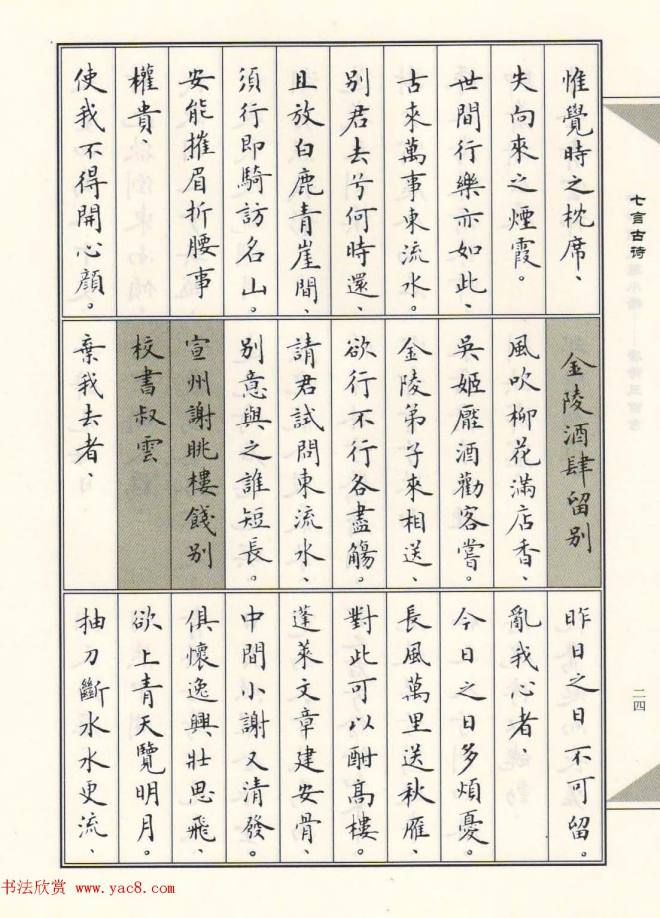 惟覺時之枕席、
失向來之煙霞。
世間行樂亦如此、
古來萬事東流水。
別君去兮何時還、
且放白鹿青崖間、
須行即騎訪名山。
安能摧眉折腰事
權貴、
使我不得開心顏。
金陵酒肆留別
風吹柳花滿店香、
吳姬壓酒勸客嘗。
金陵弟子來相送、
欲行不行各盡觴。
請君試問東流水、
別意與之誰短長。
宣州謝眺樓餞別
校書叔雲
棄我去者、
昨日之日不可留。
亂我心者、
今日之日多煩憂。
長風萬里送秋雁、
對此可以酣高樓。
蓬萊文章建安骨、
中間小謝又清發。
俱懷逸興壯思飛、
欲上青天覽明月。
抽刀斷水水更流、
七言古诗
二四
书法欣赏 www.yac8.com